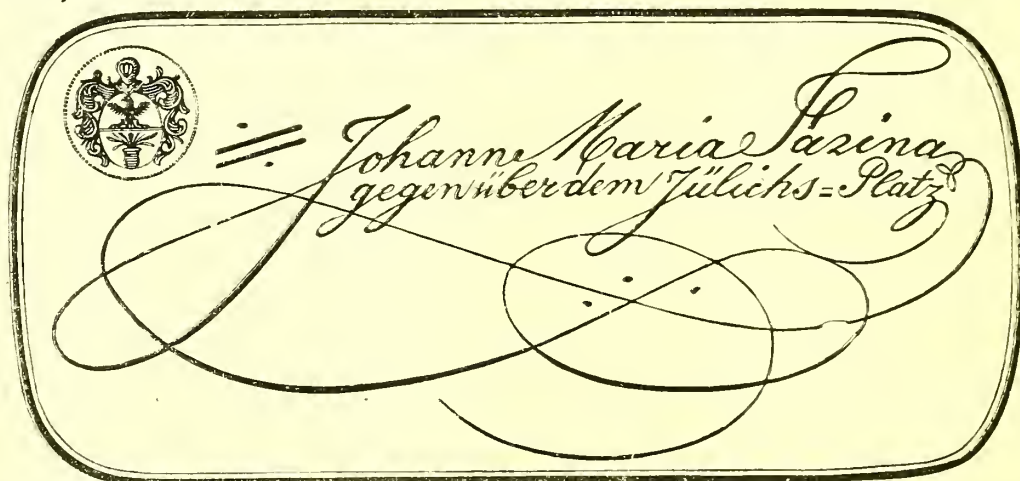 Johann Maria Farina
gegenüber dem Jülichs=Platz